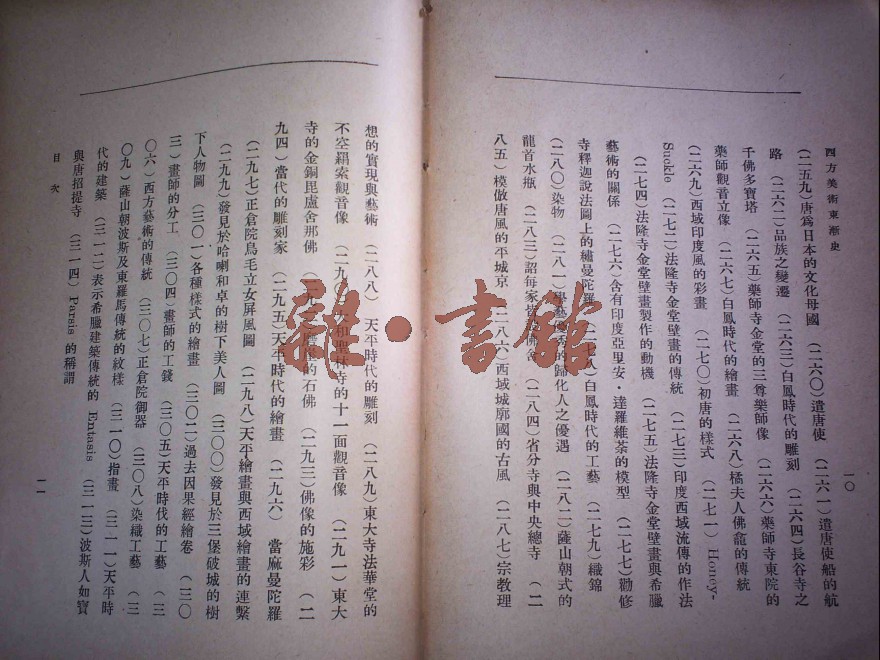 西方美術東漸史
一〇
(二五九)唐爲日本的文化母國 (二六〇)遣唐使 (二六一)遣唐使船的航
路 (二六二)品族之變遷 (二六三)白鳳時代的雕刻 (二六四)長谷寺之
千佛多寶塔 (二六五)藥師寺金堂的三尊藥師像 (二六六)藥師寺東院的
藥師觀音立像 (二六七)白鳳時代的繪畫 (二六八)橘夫人佛龕的傳統
(二六九)西域印度風的彩畫 (二七〇)初唐的樣式 (二七一) Honey-
Suckle (二七二)法隆寺金堂壁畫的傳統 (二七三)印度西域流傳的作法
(二七四)法隆寺金堂壁畫製作的動機 (二七五)法隆寺金堂壁畫與希臘
藝術的關係 (二七六)含有印度亞里安・達羅維荼的模型 (二七七)勸修
寺釋迦說法圖上的繡曼陀羅 (二七八)白鳳時代的工藝 (二七九)織錦
(二八〇)染物 (二八一)學藝優秀的歸化人之優遇 (二八二)薩山朝式的
龍首水瓶 (二八三)詔每家 佛舍 (二八四)省分寺與中央總寺 (二
八五)模倣唐風的平城京 (二八六)西域城廓國的古風 (二八七)宗教理
想的實現與藝術 (二八八) 天平時代的雕刻 (二八九)東大寺法華堂的
不空羂索觀音像 (二九〇)大和聖林寺的十一面觀音像 (二九一)東大
寺的金銅毘盧舍那佛 (二九二) 的石佛 (二九三)佛像的施彩 (二
九四)當代的雕刻家 (二九五)天平時代的繪畫 (二九六) 當麻曼陀羅
(二九七)正倉院鳥毛立女屏風圖 (二九八)天平繪畫與西域繪畫的連繫
(二九九)發見於哈喇和卓的樹下美人圖 (三〇〇)發見於三堡破城的樹
下人物圖 (三〇一)各種樣式的繪畫 (三〇二)過去因果經繪卷 (三〇
三)畫師的分工 (三〇四)畫師的工錢 (三〇五)天平時伐的工藝 (三
〇六)西方藝術的傳統 (三〇七)正倉院御器 (三〇八)染織工藝 (三
〇九)薩山朝波斯及東羅馬傳統的紋樣 (三一〇)指畫 (三一一)天平時
代的建築 (三一二)表示希臘建築傳統的 Entasis (三一三)波斯人如寶
與唐招提寺 (三一四) Parsis 的稱謂
目次
一一
雜・書館